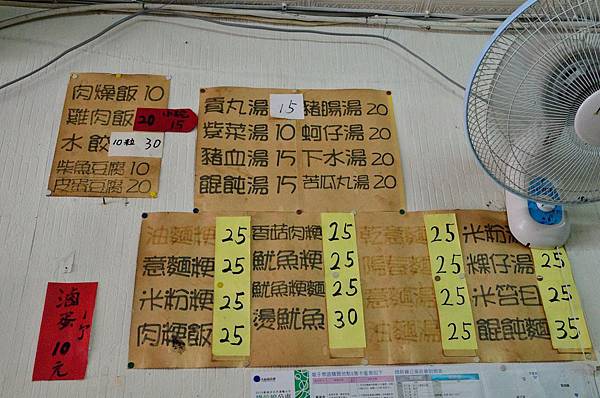 肉燥飯 10
雞肉飯 20 小碗 15
水餃 10粒 30
柴魚豆腐 10
皮蛋豆腐 20
貢丸湯 15
紫菜湯 10
豬血湯 15
餛飩湯 15
豬腸湯 20
蚵仔湯 20
下水湯 20
苦瓜丸湯 20
油麵粳 25
意麵粳 25
米粉粳 25
肉粳飯 25
香菇肉粳 25
魷魚粳 25
魷魚粳麵 25
燙魷魚 30
乾意麵 25
陽春麵 25
意麵湯 25
油麵湯 25
米粉湯
粿仔湯 25
米苔目 25
餛飩麵 35
滷蛋 1个 10元